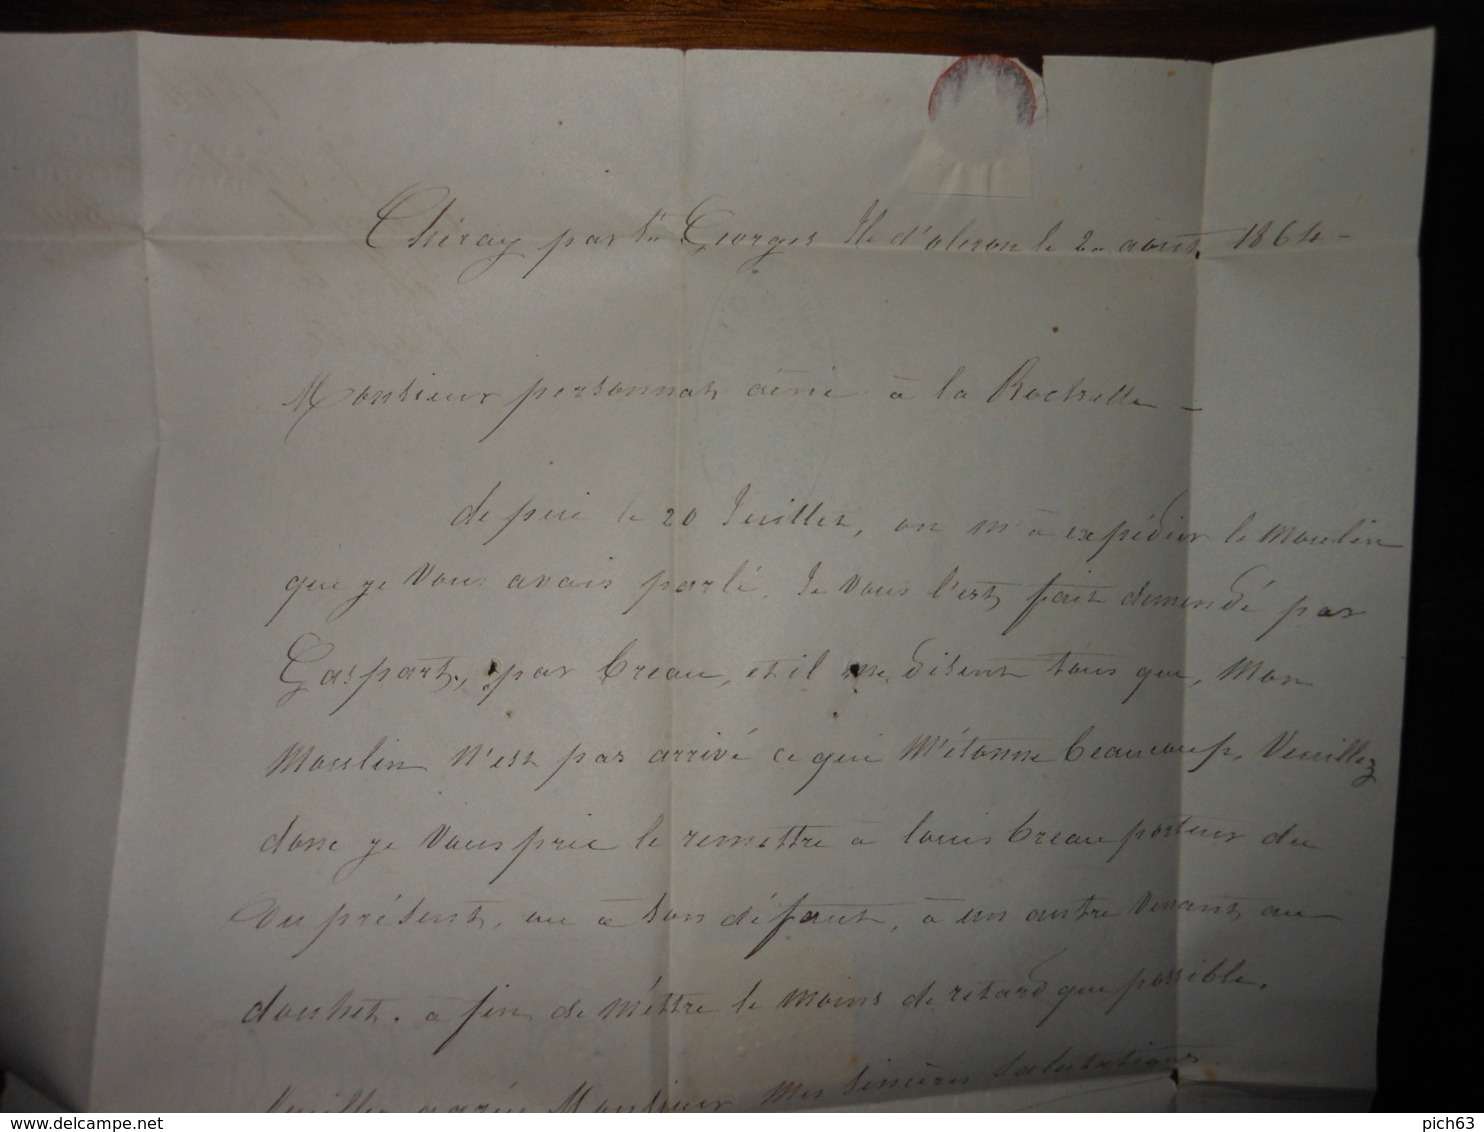 Chéray par St Georges Ile d'oleron le 2 aout 1864 -
Monsieur personnat ainé à la Rochelle -
depui le 20 Juillet, on m'à expédier le moulin
que je vous avais parlé, Je vous l'est fait demendé par
Gaspart, par Creau, et il me disent tous que, mon
moulin n'est pas arrivé ce qui m'étonne beaucoup, veuillez
donc je vous prie le remettre à louis Creau porteur du
du présent, ou à son défaut, à un autre venant au
douhet. à fin de mettre le moins de retard que possible,
Veuillez agréé Monsieur mes sincères salutations
delcampe.net
pich63